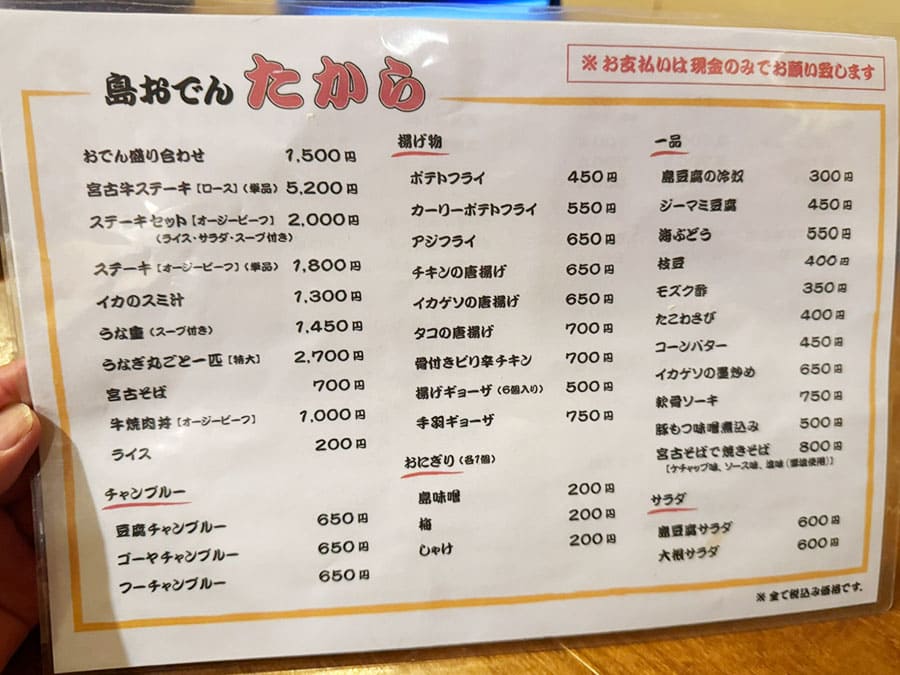 島おでん たから
※お支払いは現金のみでお願い致します
おでん盛り合わせ 1,500円
宮古牛ステーキ[ロース](単品) 5,200円
ステーキセット[オージービーフ] 2,000円
(ライス・サラダ・スープ付き)
ステーキ[オージービーフ](単品) 1,800円
イカのスミ汁 1,300円
うな重(スープ付き) 1,450円
うなぎ丸ごと一匹[特大] 2,700円
宮古そば 700円
牛焼肉丼[オージービーフ] 1,000円
ライス 200円
チャンプルー
豆腐チャンプルー 650円
ゴーヤチャンプルー 650円
フーチャンプルー 650円
揚げ物
ポテトフライ 450円
カーリーポテトフライ 550円
アジフライ 650円
チキンの唐揚げ 650円
イカゲソの唐揚げ 650円
タコの唐揚げ 700円
骨付きピリ辛チキン 700円
揚げギョーザ(6個入り) 500円
手羽ギョーザ 750円
おにぎり(各1個)
島味噌 200円
梅 200円
しゃけ 200円
一品
島豆腐の冷奴 300円
ジーマミ豆腐 450円
海ぶどう 550円
枝豆 400円
モズク酢 350円
たこわさび 400円
コーンバター 450円
イカゲソの墨炒め 650円
軟骨ソーキ 750円
豚もつ味噌煮込み 500円
宮古そばで焼きそば 800円
[ケチャップ味、ソース味、塩味(雪塩使用)]
サラダ
島豆腐サラダ 600円
大根サラダ 600円
※全て税込み価格です。